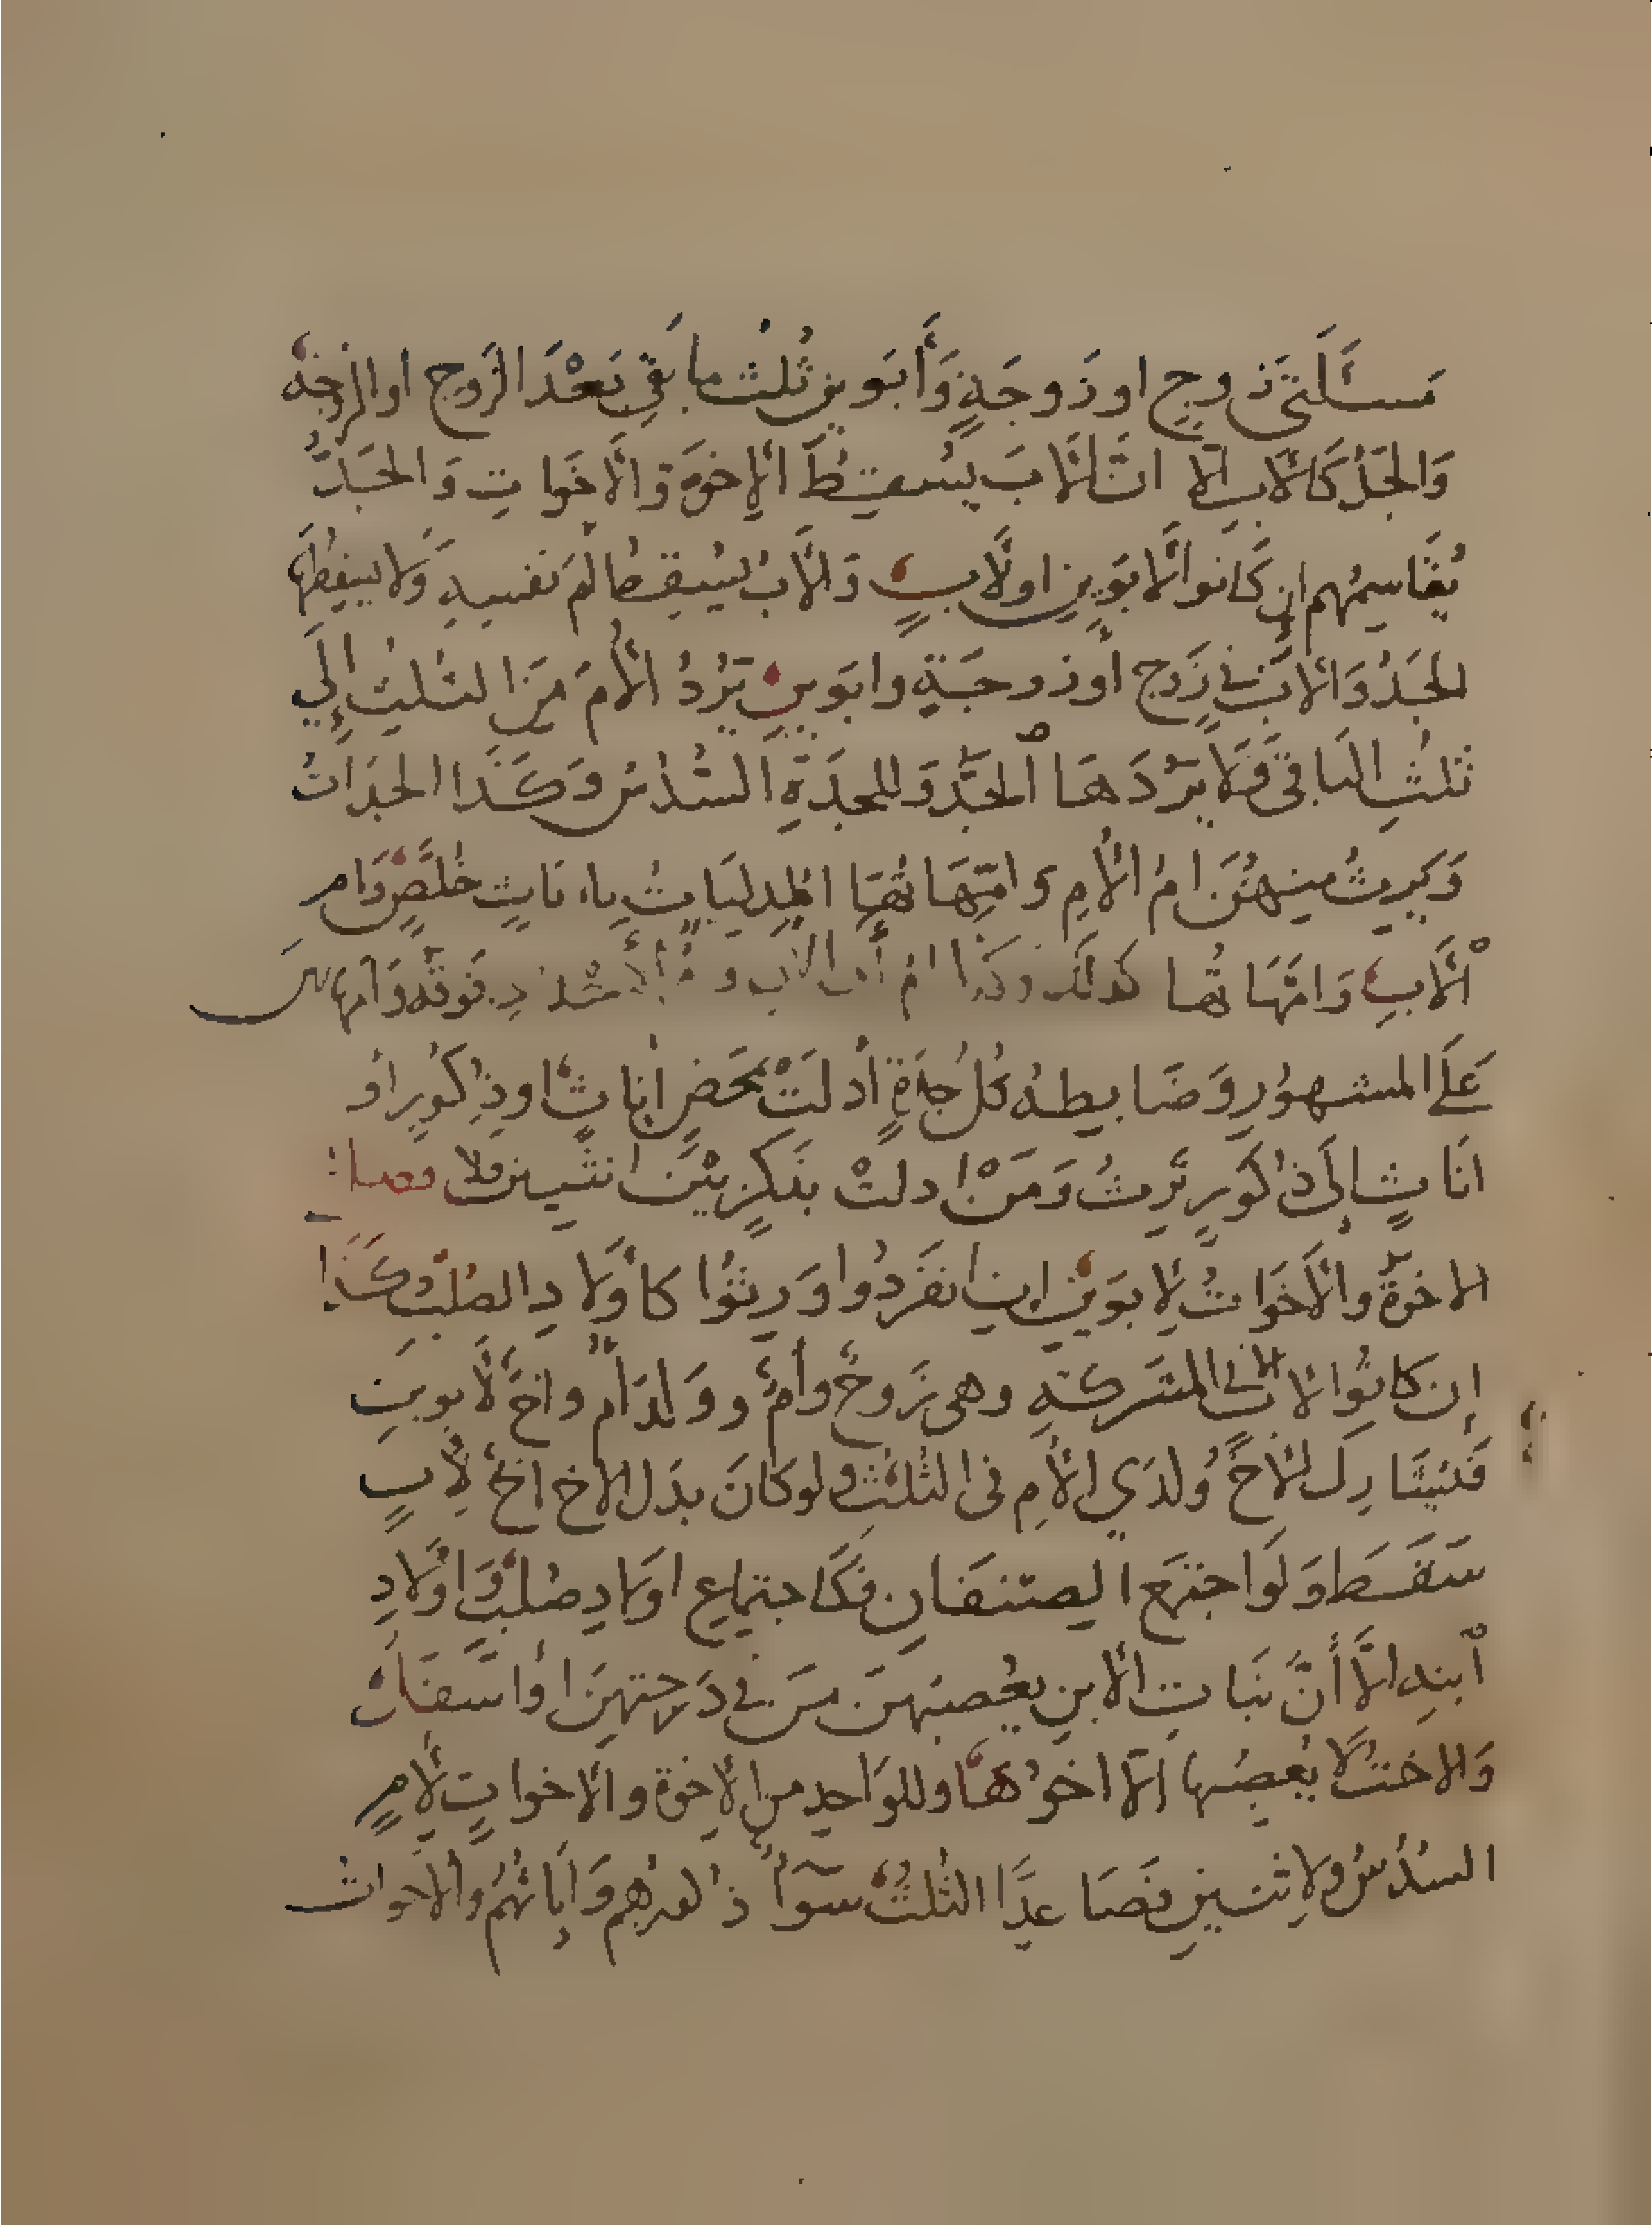 مَسئَلَتَي زَوجٍ او زَوجَةٍ وَأَبَوينِ ثُلثُ ما بقي بَعْدَ الزَوج او الزوجة
وَالجَدُ كَالأب إلا انَّ الأبَ يُسقِطُ الإخوَةَ وَالأخَواتِ وَالجَدُّ
يُقَاسِمُهم إن كَانوا لأبَوينِ او لأبٍ وَالأبُ يُسقِطُ امَ نفسِهِ وَلا يسقطها
الجَدُ وَالأبُ في زَوج أو زوجَةٍ وابَوينِ يَرُدُ الأُمَ مَن الثلثِ إلي
ثلثِ الباقي وَلا يَرُدهَا الجَدّ وَللجدَةِ السُدُسُ وَكَذا الجدَاتُ
وَيرثُ مِنهُنَ امُ الأمِ وَامّهَاتهَا المدلياتُ باناثٍ خُلّصٍ وَام
الأبِ وَامّهَاتُها كذلكَ وكذا امُ أب الأب وَ فوقَهُ وَامهاتهن
عَلَى المشهُورِ وَضَابِطهُ كُل جدةٍ أدلَتْ بمحَضِ اناثٍ او ذكُورٍ أو
انَاثٍ إلَى ذُكورٍ تَرِثُ وَمَنْ ادلتْ بذكرٍ بيْن انثيين فلا فصل
الاخوَةُ والأخَواتُ لِأبَوَين إن انفَرَدُوا وَرِثوُا كأولادِ الصُلب وَكذا
إن كانُوا لأب إلا في المشركةِ وهى زَوجٌ وأمٌ وولدَا أم واخٌ لأبوين
فَيشَارِك الأخُ وُلدَي الأُمِ فى الثلُث ولو كانَ بدَل الاخ اخٌ لأبٍ
سَقَطَ وَلوَ اجتمَع الصِنفَانِ فكاجتماعِ اولادِ صُلبٍ وَأولادِ
ٱبنهِ إلّا أنَّ بَناتِ الأبنِ يعُصبُهنَ مَن في دَرجتهِنَ أو اسَفَلَ
وَالاختُ لا يُعصِبُها إلّا اخوُهَا وللواحدِ من الأخوةِ والأخواتِ لأمٍ
السُدُسُ ولإثنين فصَاعدًا الثلُثُ سَوآءٌ ذكورهم وَإناثهُم والأخواتُ